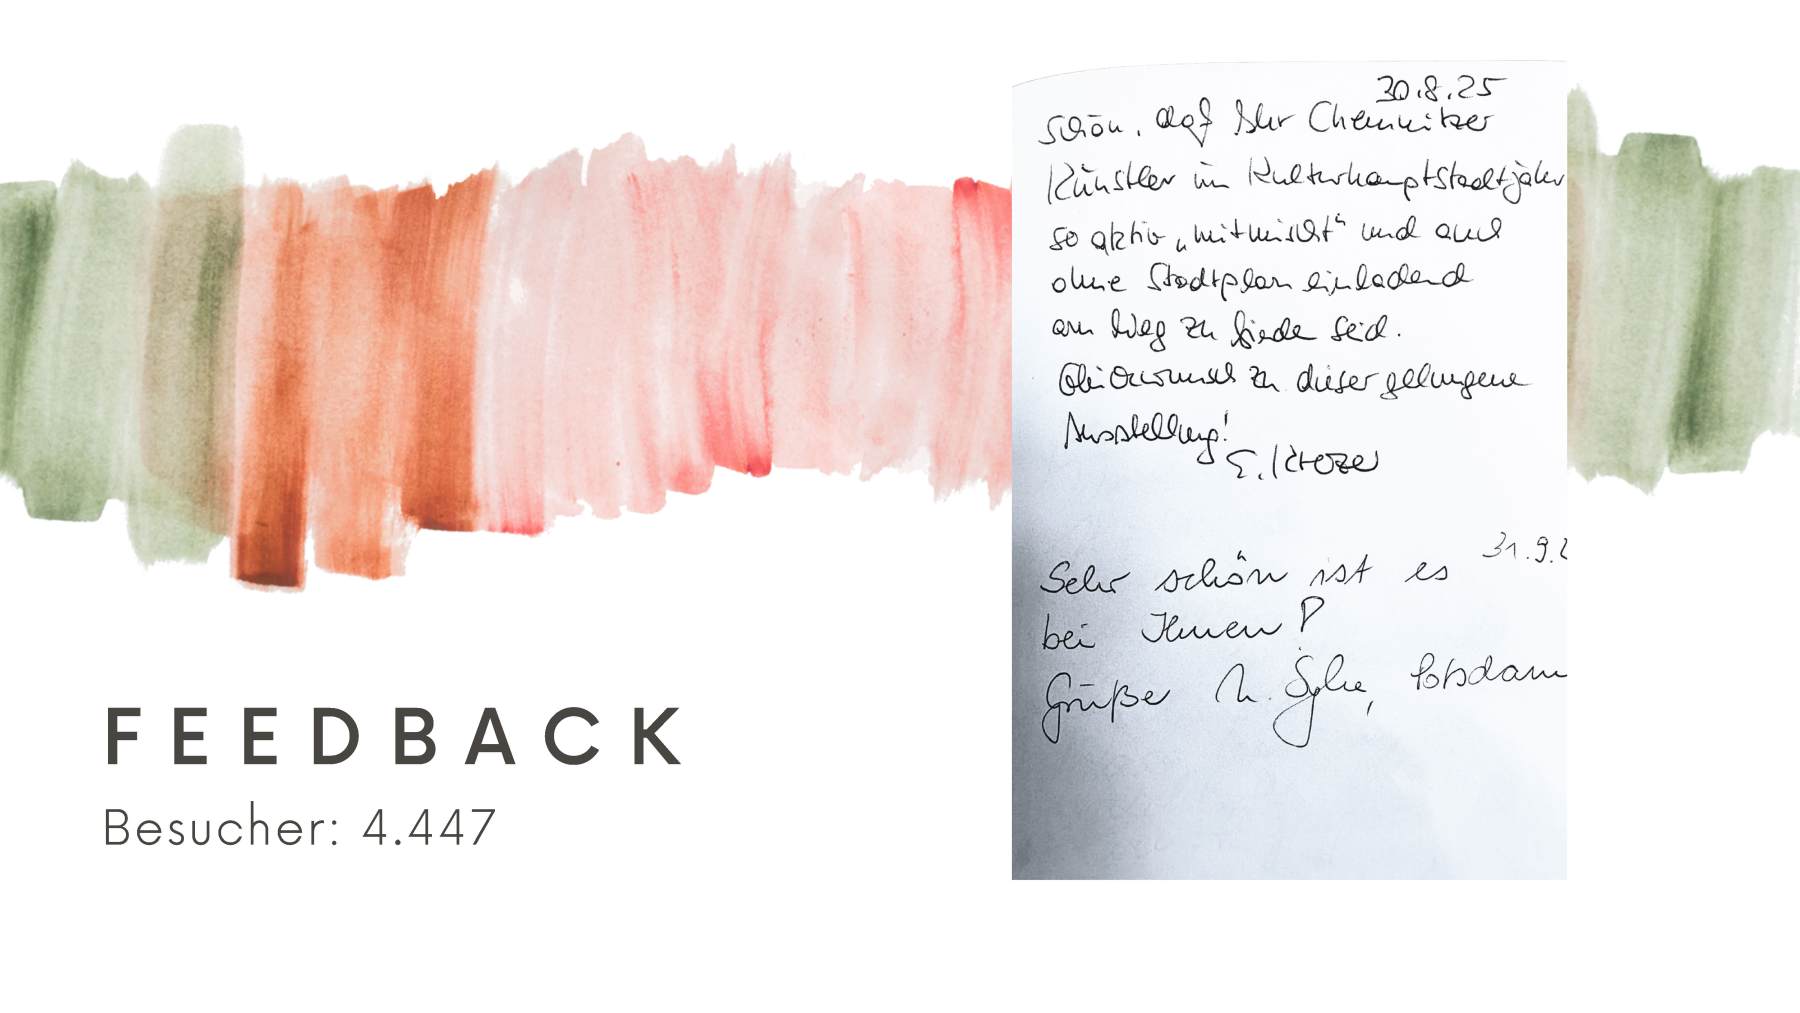 FEEDBACK
Besucher: 4.447
30.8.25
Schön, daß Ihr Chemnitzer
Künstler im Kulturhauptstadtjahr
so aktiv „mitmischt“ und auch
ohne Stadtplan einladend
am Weg zu finden seid.
Glückwunsch zu dieser gelungene
Ausstellung!
31.9.2
Sehr schön ist es
bei Ihnen!
Grüße Potsdam